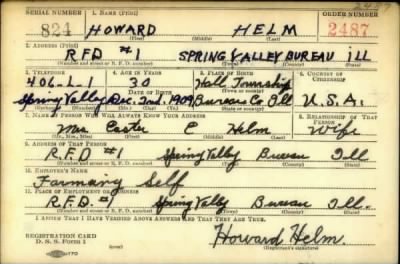 SERIAL NUMBER 1. NAME (Print) ORDER NUMBER
824 HOWARD HELM 2487
(First) (Middle) (Last)
2. ADDRESS (Print)
RFD #1 SPRING VALLEY BUREAU ILL
(Number and street or R. F. D. number) (Town) (County) (State)
3. TELEPHONE 4. AGE IN YEARS 5. PLACE OF BIRTH 6. COUNTRY OF CITIZENSHIP
406-L-1 30 Hall Township
DATE OF BIRTH
Spring Valley Dec. 2nd. 1909 Bureau Co. Ill U.S.A.
7. NAME OF PERSON WHO WILL ALWAYS KNOW YOUR ADDRESS 8. RELATIONSHIP OF THAT PERSON
Mrs E Helm Wife
(Mr., Mrs., Miss) (First) (Middle) (Last)
9. ADDRESS OF THAT PERSON
R.F.D #1 Spring Valley Bureau Ill
(Number and street or R. F. D. number) (Town) (County) (State)
10. EMPLOYER'S NAME
Farming Self
11. PLACE OF EMPLOYMENT OR BUSINESS
R.F.D. #1 Spring Valley Bureau Ill.
(Number and street or R. F. D. number) (Town) (County) (State)
I AFFIRM THAT I HAVE VERIFIED ABOVE ANSWERS AND THAT THEY ARE TRUE.
REGISTRATION CARD
D. S. S. Form 1
Howard Helm.
(Registrant's signature)